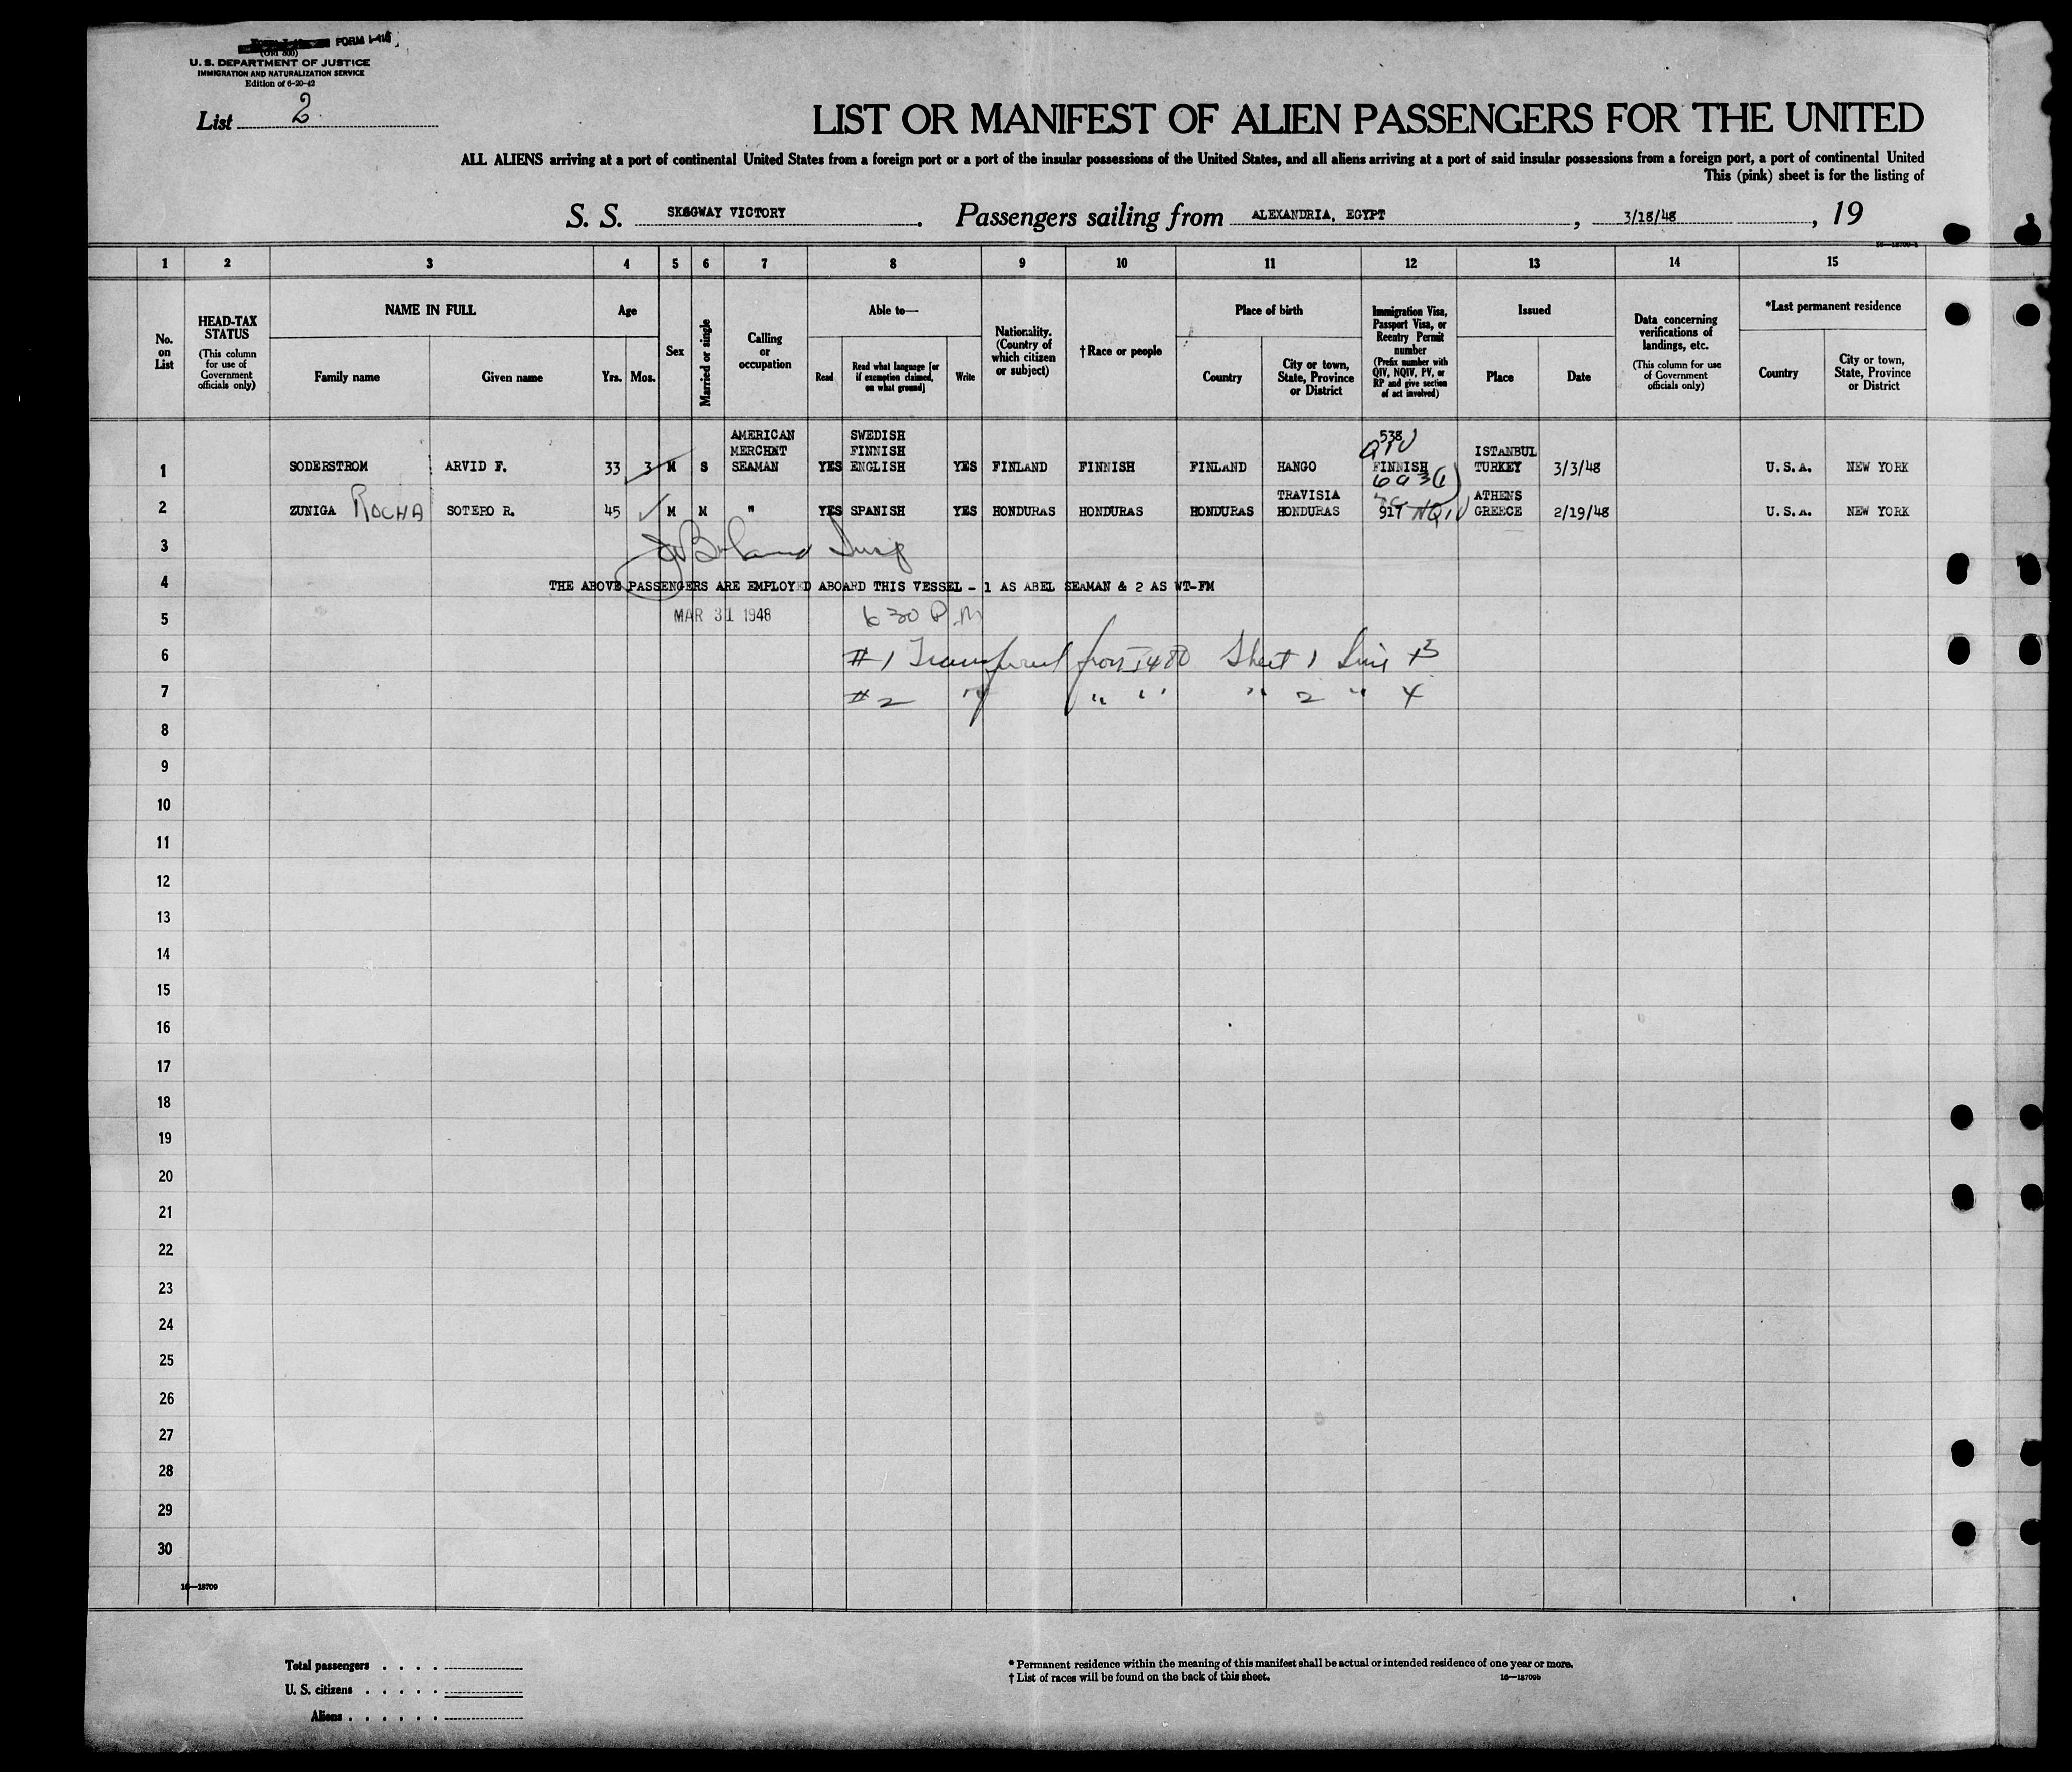 FORM I-415
(Old 500)
U. S. DEPARTMENT OF JUSTICE
IMMIGRATION AND NATURALIZATION SERVICE
Edition of 6-20-42
List 2
LIST OR MANIFEST OF ALIEN PASSENGERS FOR THE UNITED
ALL ALIENS arriving at a port of continental United States from a foreign port or a port of the insular possessions of the United States, and all aliens arriving at a port of said insular possessions from a foreign port, a port of continental United
This (pink) sheet is for the listing of
S. S. SKAGWAY VICTORY. Passengers sailing from ALEXANDRIA, EGYPT, 3/18/48, 19
1 2 3 4 5 6 7 8 9 10 11 12 13 14 15
No. on List
HEAD-TAX STATUS (This column for use of Government officials only)
NAME IN FULL
Family name
Given name
Age
Yrs. Mos.
Sex
Married or single
Calling or occupation
Able to—
Read
Read what language [or if exemption claimed, on what ground]
Write
Nationality. (Country of which citizen or subject)
†Race or people
Place of birth
Country
City or town, State, Province or District
Immigration Visa, Passport Visa, or Reentry Permit number (Prefix number with QIV, NQIV, PV, or RP and give section of act involved)
Issued
Place
Date
Data concerning verifications of landings, etc. (This column for use of Government officials only)
*Last permanent residence
Country
City or town, State, Province or District
AMERICAN SWEDISH 538
MERCHNT FINNISH QIV ISTANBUL
1 SODERSTROM ARVID F. 33 3 M S SEAMAN YES ENGLISH YES FINLAND FINNISH FINLAND HANGO FINNISH TURKEY 3/3/48 U.S.A. NEW YORK
TRAVISIA ATHENS
2 ZUNIGA ROCHA SOTERO R. 45 M M " YES SPANISH YES HONDURAS HONDURAS HONDURAS HONDURAS 917 NQIV GREECE 2/19/48 U.S.A. NEW YORK
3
4 THE ABOVE PASSENGERS ARE EMPLOYED ABOARD THIS VESSEL - 1 AS ABEL SEAMAN & 2 AS WT-FM
5 MAR 31 1948 6 30 P.M
6 #1 Transferred from I480 Sheet 1 Line
7 #2 " " " " 2 " 4
8
9
10
11
12
13
14
15
16
17
18
19
20
21
22
23
24
25
26
27
28
29
30
16—18709
Total passengers . . . .
U. S. citizens . . . . .
Aliens . . . . . .
* Permanent residence within the meaning of this manifest shall be actual or intended residence of one year or more.
† List of races will be found on the back of this sheet.
16—18709b